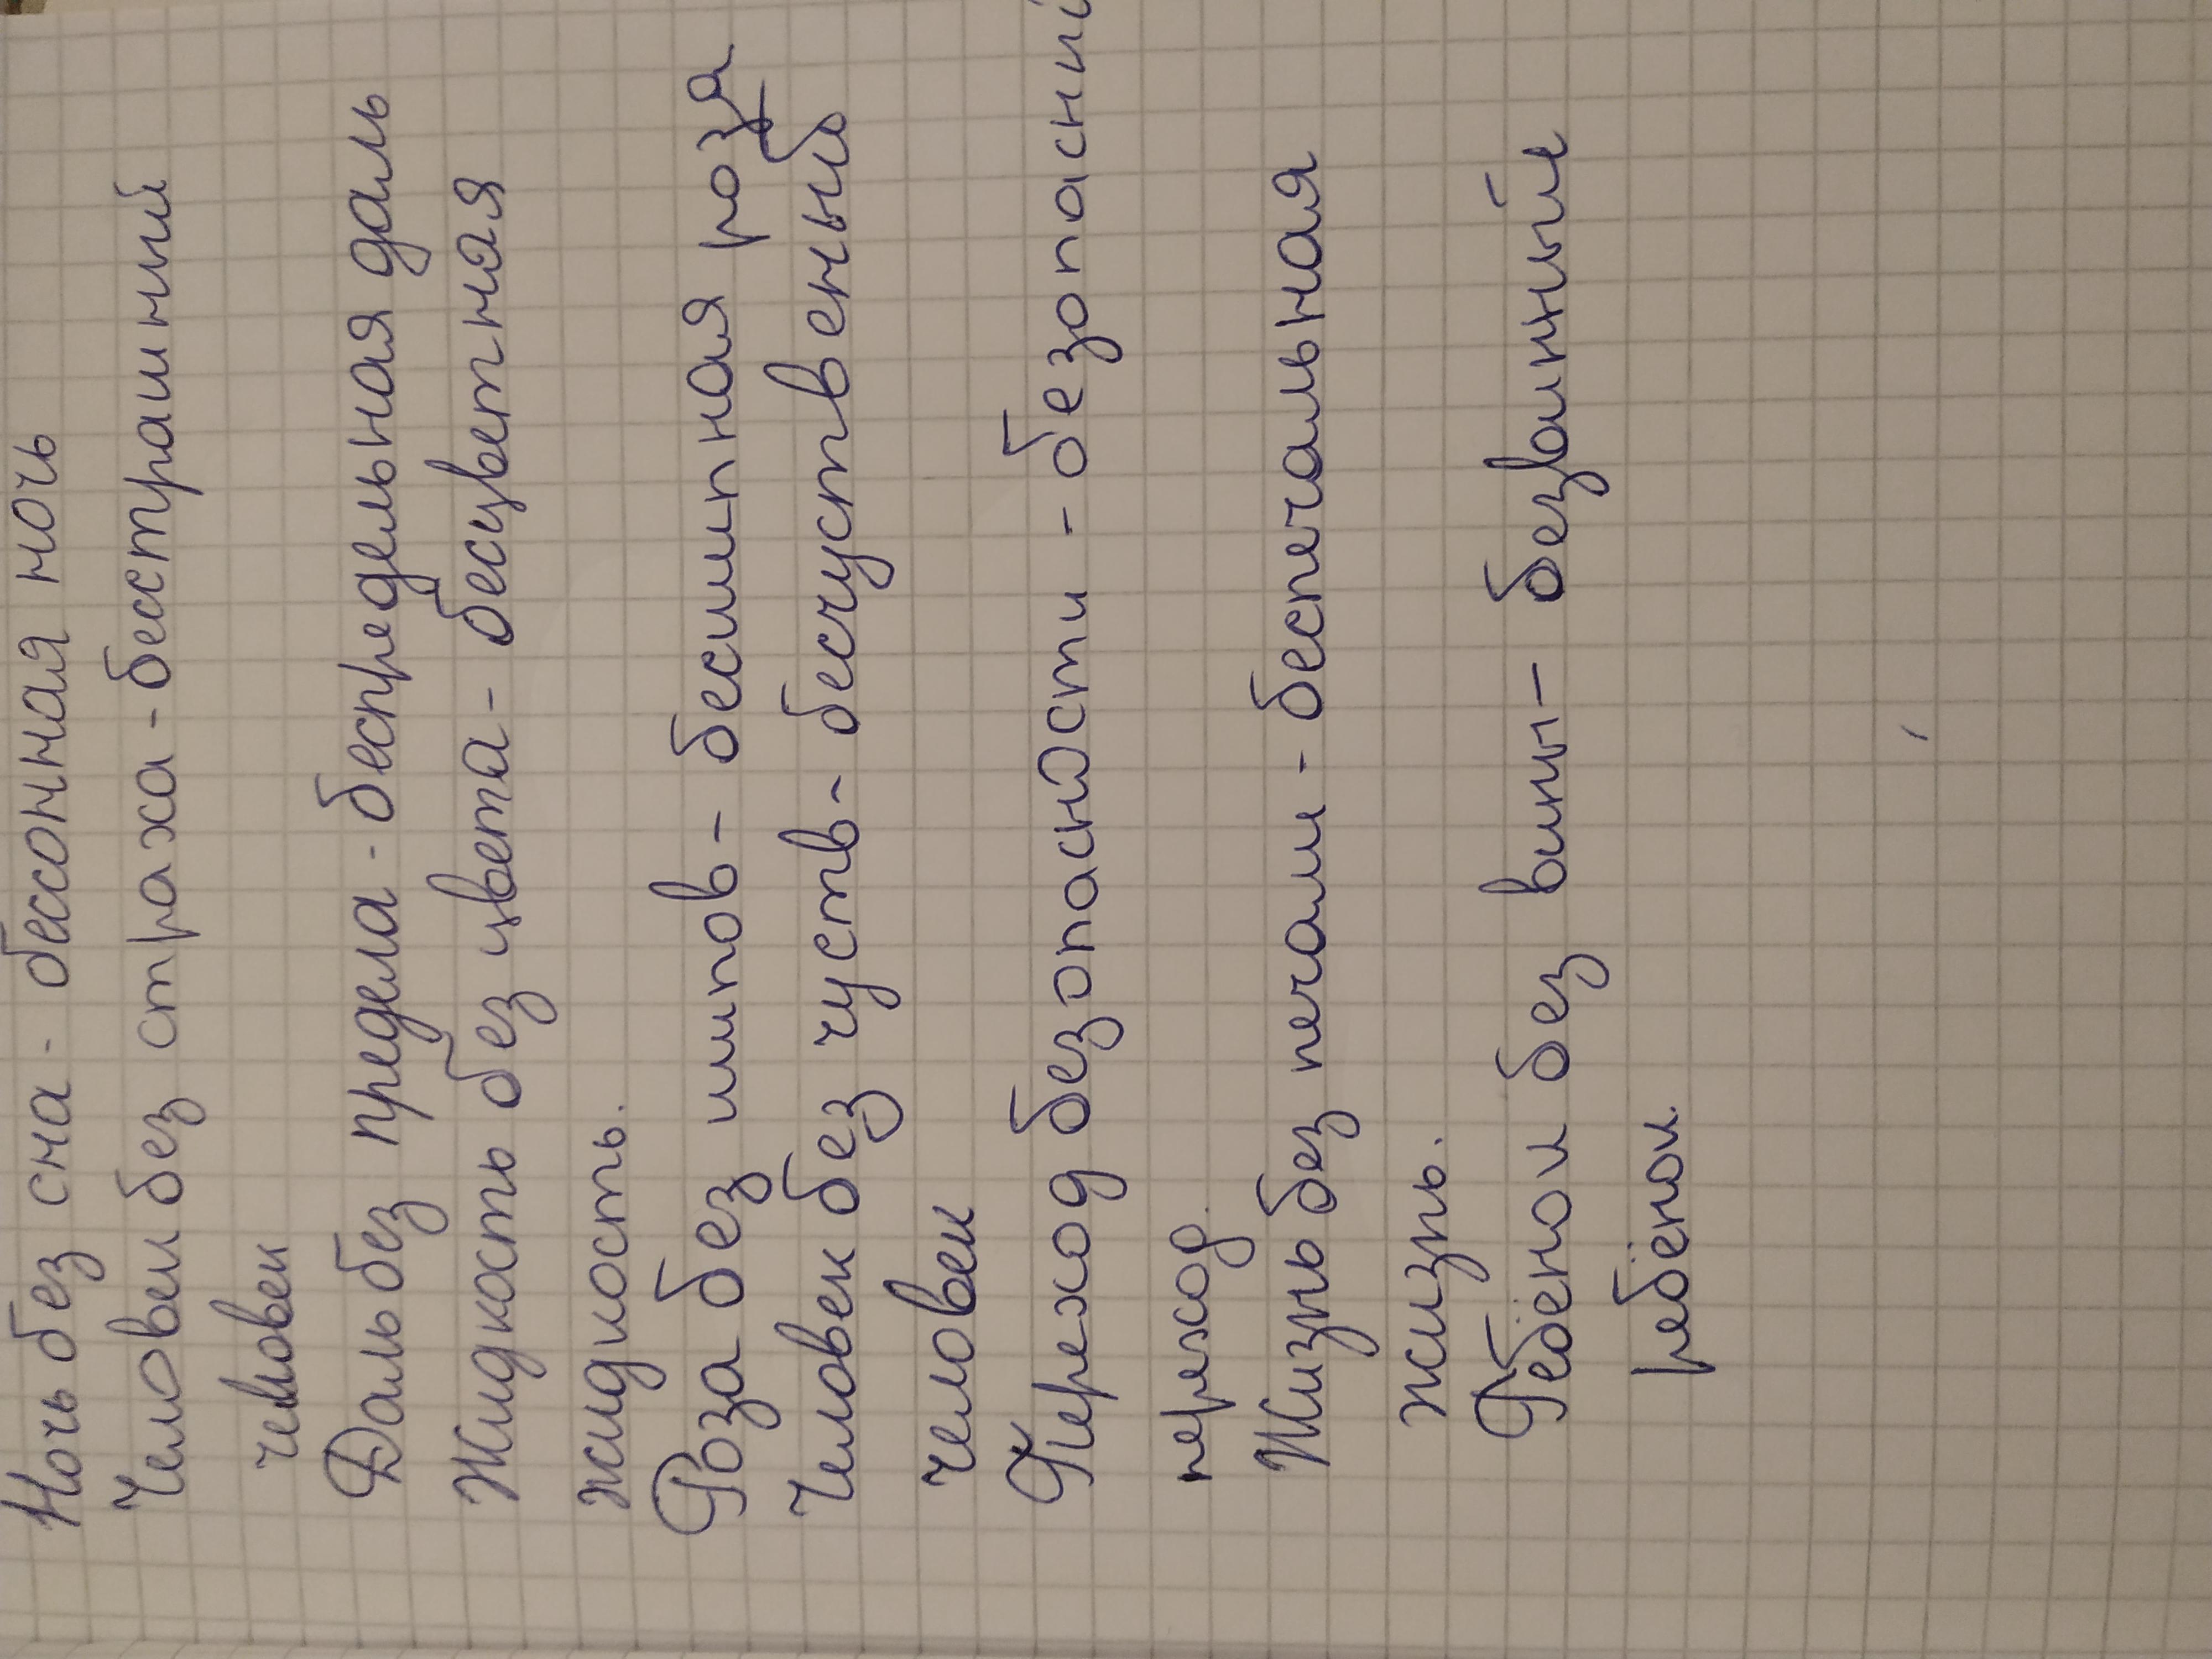 Ночь без сна - бессонная ночь
Человек без страха - бесстрашний
человек
Даль без предела - беспредельная даль
Жидкость без цвета - бесцветная
жидкость.
Роза без шипов - бесшипная роза
Человек без чуств - бесчуственый
человек
Переход безопасности - безопасний
переход.
Жизнь без печали - беспечальная
жизнь.
Ребёнок без вины - безвинный
ребёнок.